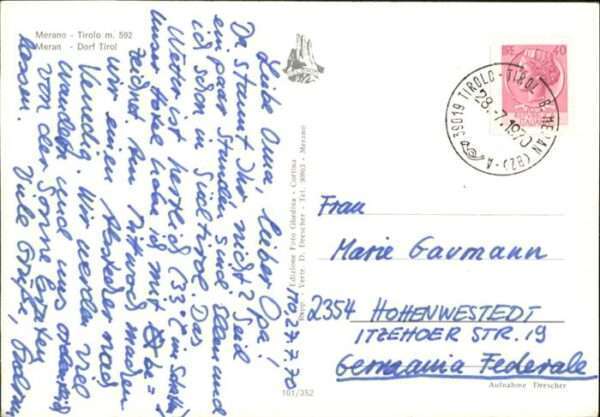 Merano - Tirolo m. 592
Meran - Dorf Tirol
Mo, 27.7.70
Liebe Oma, lieber Opa!
Da staunt Ihr nicht? Seid
ein paar Stunden sind Claus und
ich schon in Südtirol. Das
Wetter ist herrlich (33°C im Schatten)
unser Hotel liebe ist mit be=
zeichnet. Am Mittwoch machen
wir einen Abstecher nach
Venedig. Wir werden viel
wandern und uns ordentlich
von der Sonne braten
lassen.
Viele Grüße,
Edizione Foto Ghedina - Cortina
Rapp. - Vertr. D. Drescher - Tel. 30963 - Merano
101/252
40
39019 TIROLO - TIROL B. MERAN (BZ) - A
28.-7.1970
Frau
Marie Gaumann
2354 HOHENWESTEDT
ITZEHOER STR. 19
Germania Federale
Aufnahme Drescher